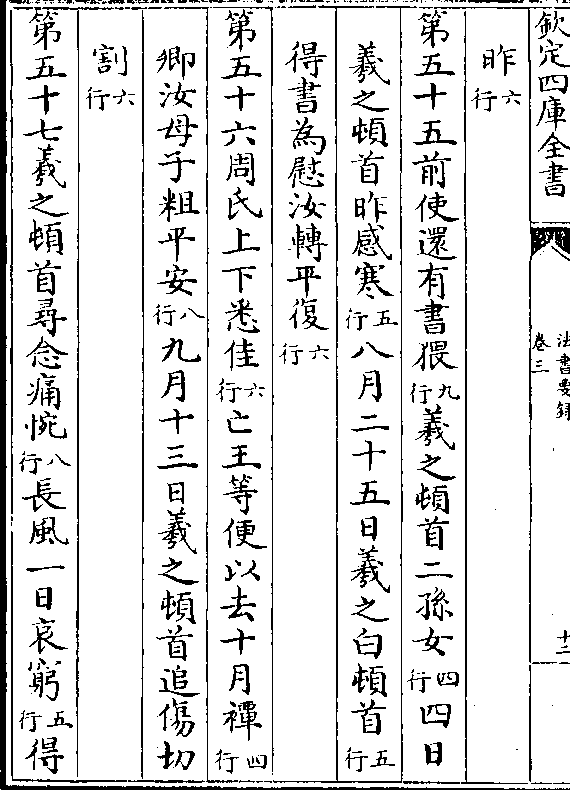 欽定四庫全書
法書要録
卷三
十二
昨六行
第五十五前使還有書猥九行羲之頓首二孫女四行四日
羲之頓首昨感寒五行八月二十五日羲之白頓首五行
得書為慰汝轉平復六行
第五十六周氏上下悉佳六行亡王等便以去十月禫四行
卿汝母子粗平安八行九月十三日羲之頓首追傷切
割六行
第五十七羲之頓首尋念痛惋八行長風一日哀窮五行得